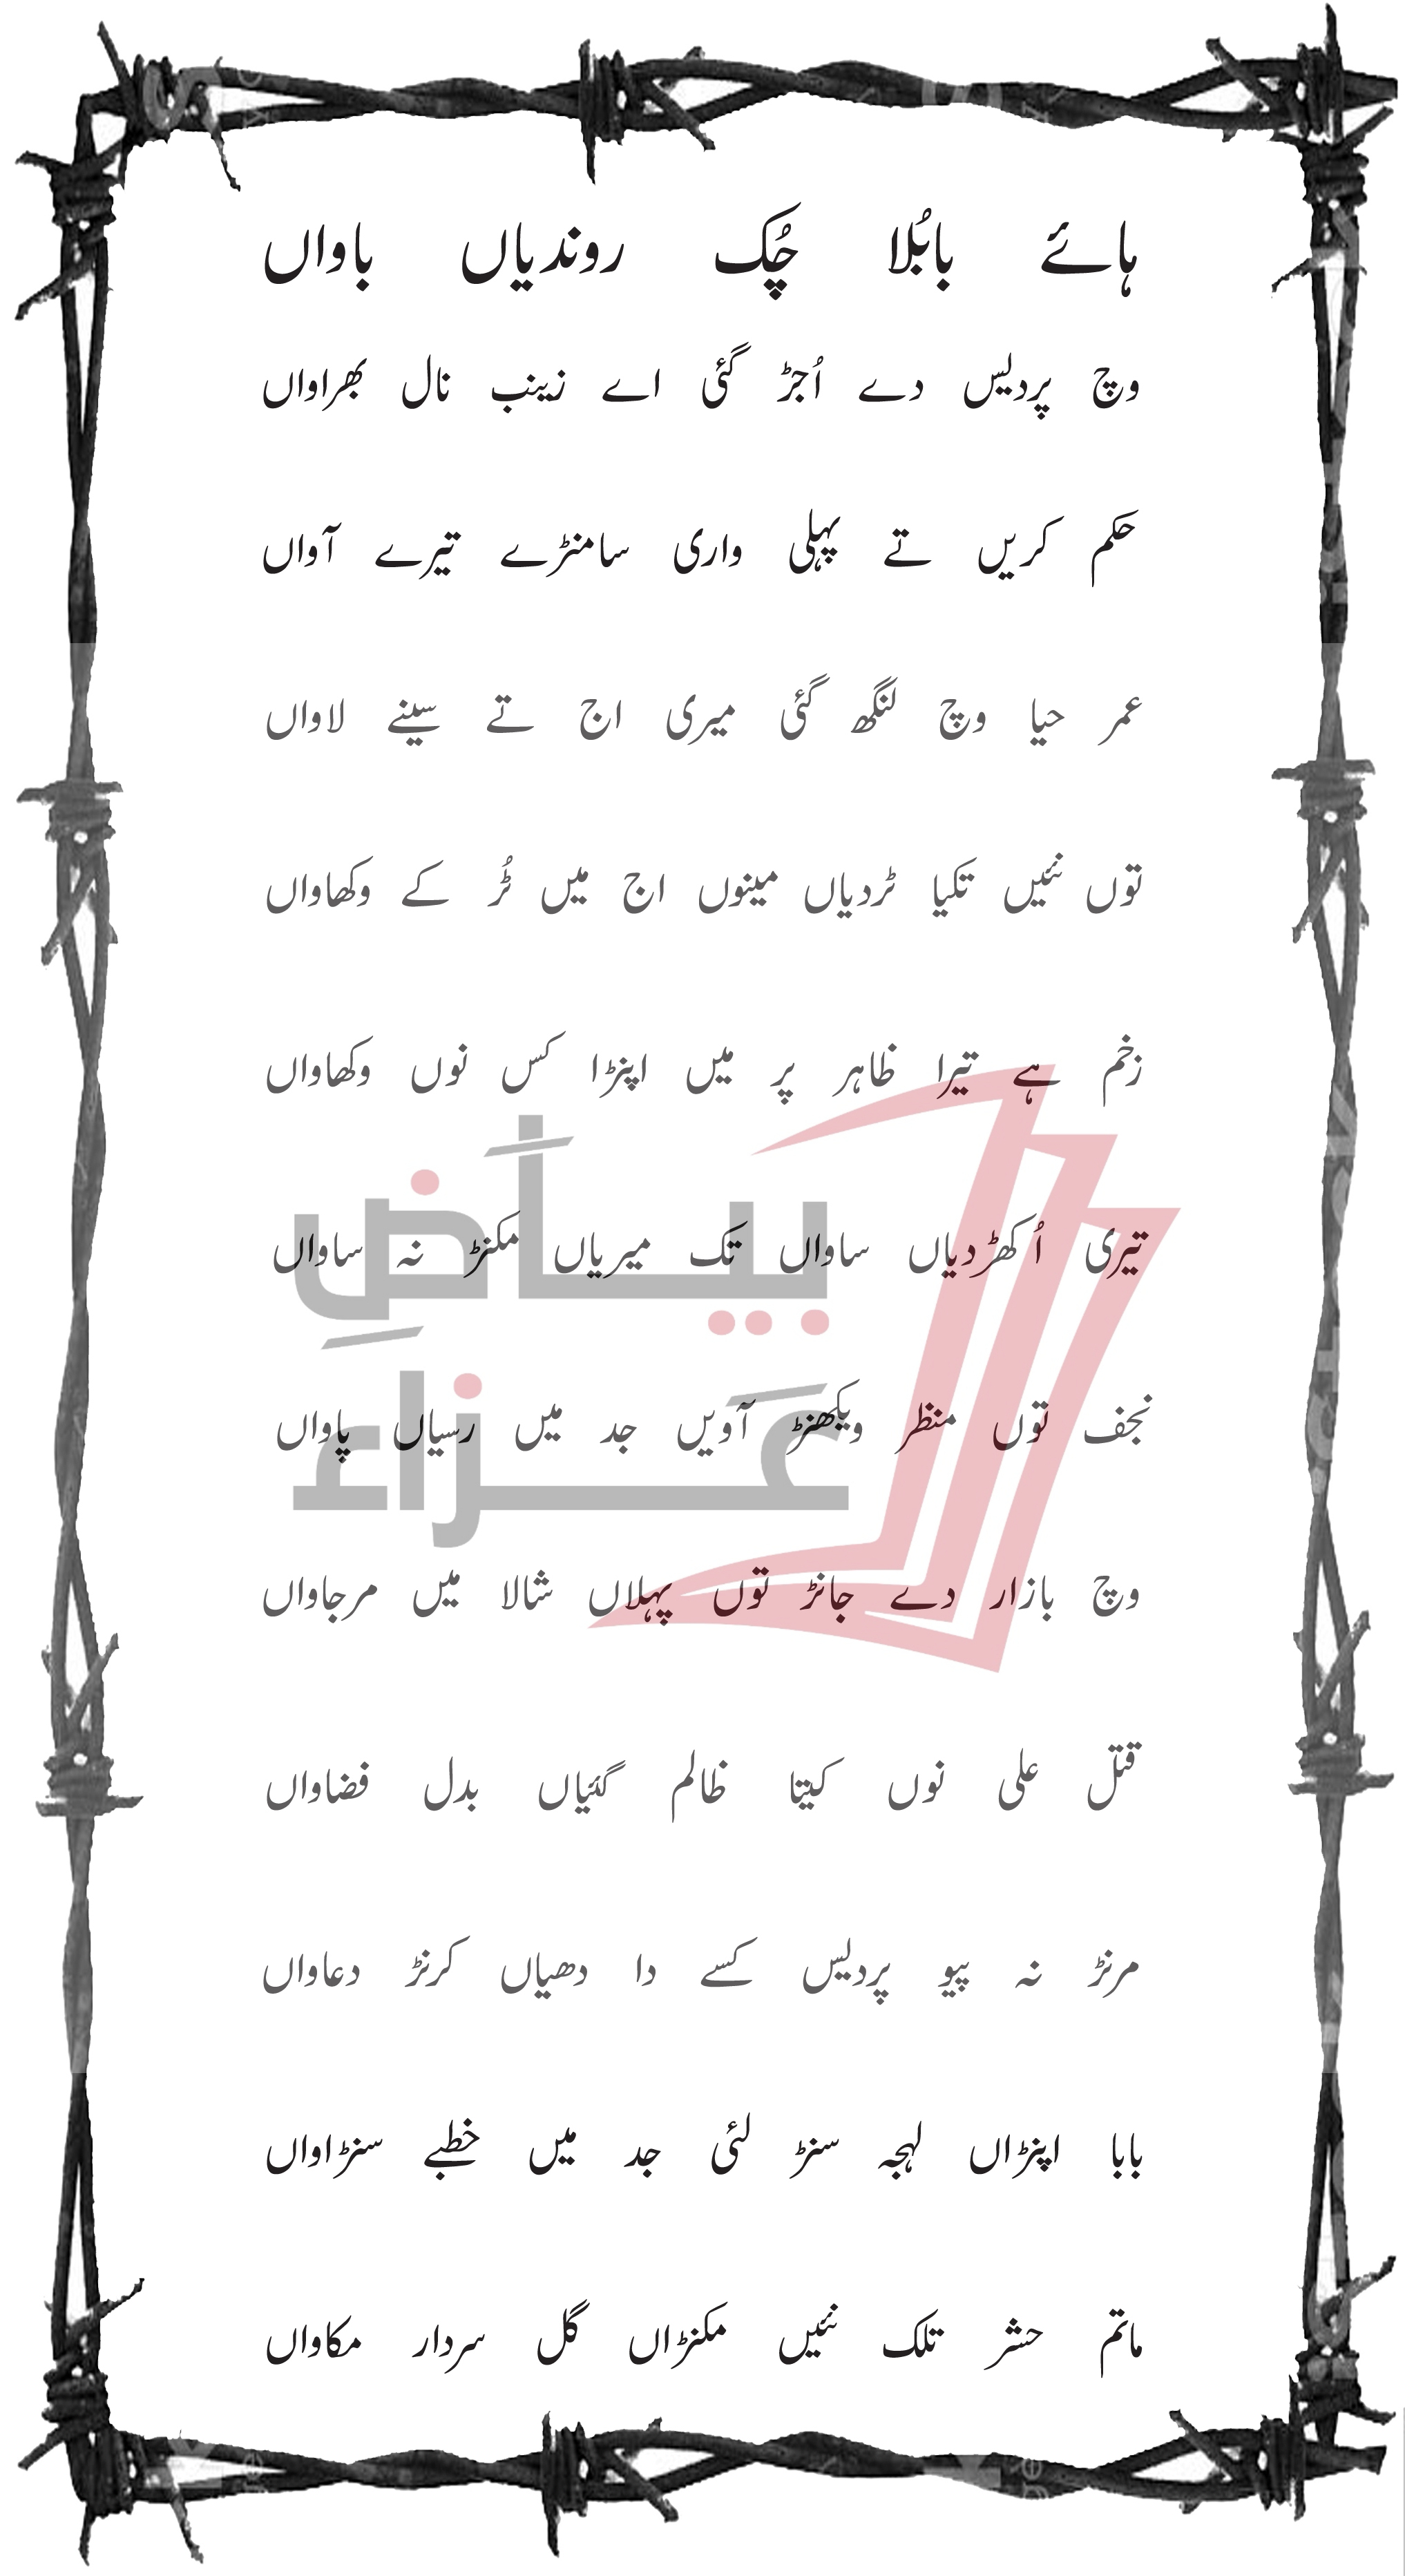 ہائے بابُلا چُک روندیاں باواں
وچ پردیس دے اُجڑ گئی اے زینب نال بھراواں
حکم کریں تے پہلی واری سامنڑے تیرے آواں
عمر حیا وچ لنگھ گئی میری اج تے سینے لاواں
توں نئیں تکیا ٹردیاں مینوں اج میں ٹُر کے وکھاواں
زخم ہے تیرا ظاہر پر میں اپنڑا کس نوں وکھاواں
تیری اُکھڑدیاں ساواں تک میریاں مکنڑ نہ ساواں
نجف توں منظر ویکھنڑ آویں جد میں رسیاں پاواں
وچ بازار دے جانڑ توں پہلاں شالا میں مرجاواں
قتل علی نوں کیتا ظالم گئیاں بدل فضاواں
مرنڑ نہ پیو پردیس کسے دا دھیاں کرنڑ دعاواں
بابا اپنڑاں لہجہ سنڑ لئی جد میں خطبے سنڑاواں
ماتم حشر تلک نئیں مکنڑاں گل سردار مکاواں
بیاضِ
عزاء